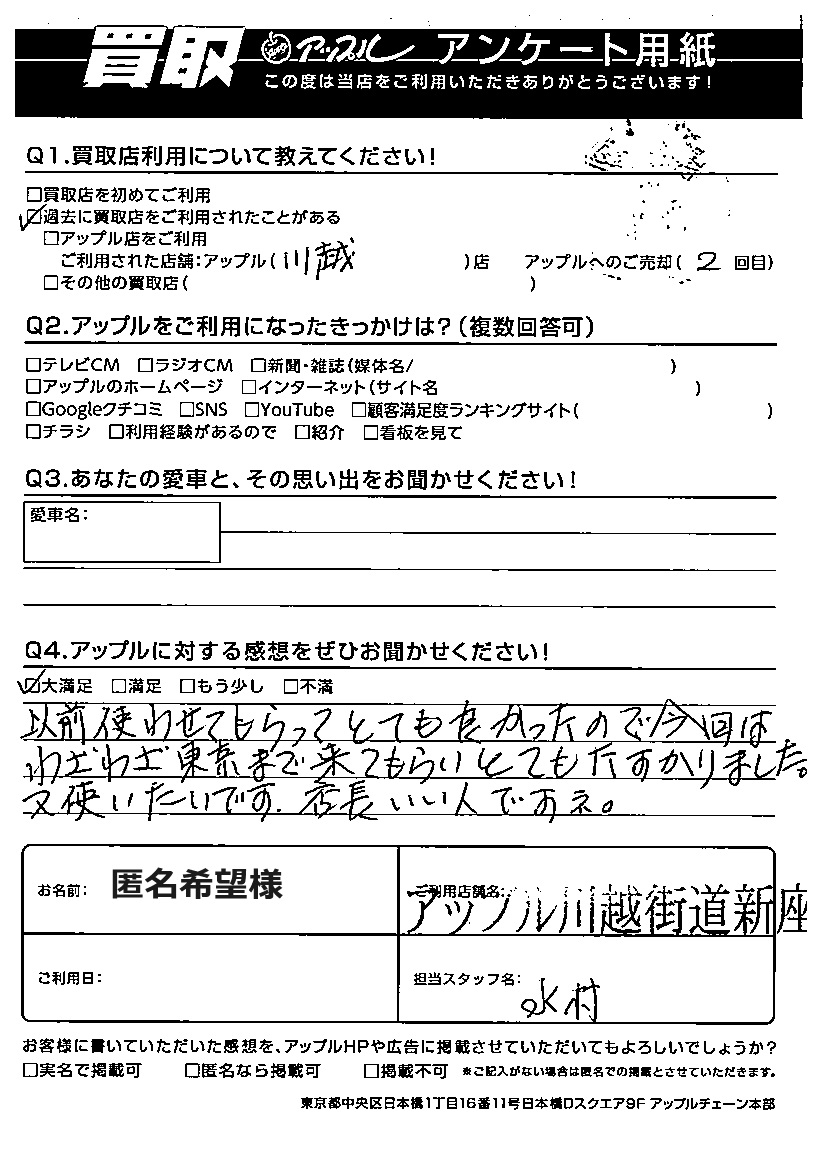 買取 アップル アンケート用紙
この度は当店をご利用いただきありがとうございます!
Q1.買取店利用について教えてください!
□買取店を初めてご利用
☑過去に買取店をご利用されたことがある
□アップル店をご利用
ご利用された店舗:アップル(川越)店 アップルへのご売却(2回目)
□その他の買取店( )
Q2.アップルをご利用になったきっかけは?(複数回答可)
□テレビCM □ラジオCM □新聞・雑誌(媒体名/ )
□アップルのホームページ □インターネット(サイト名 )
□Googleクチコミ □SNS □YouTube □顧客満足度ランキングサイト( )
□チラシ □利用経験があるので □紹介 □看板を見て
Q3.あなたの愛車と、その思い出をお聞かせください!
愛車名:
Q4.アップルに対する感想をぜひお聞かせください!
☑大満足 □満足 □もう少し □不満
以前使わせてもらってとてもよかったので今回は
わざわざ東京まで来てもらいとてもたすかりました。
又使いたいです。店長いい人ですネ。
お名前: 匿名希望様
ご利用店舗名:
アップル川越街道新座
ご利用日:
担当スタッフ名:
水村
お客様に書いていただいた感想を、アップルHPや広告に掲載させていただいてもよろしいでしょうか?
□実名で掲載可 □匿名なら掲載可 □掲載不可 ※ご記入がない場合は匿名での掲載とさせていただきます。
東京都中央区日本橋1丁目16番11号日本橋Dスクエア9F アップルチェーン本部